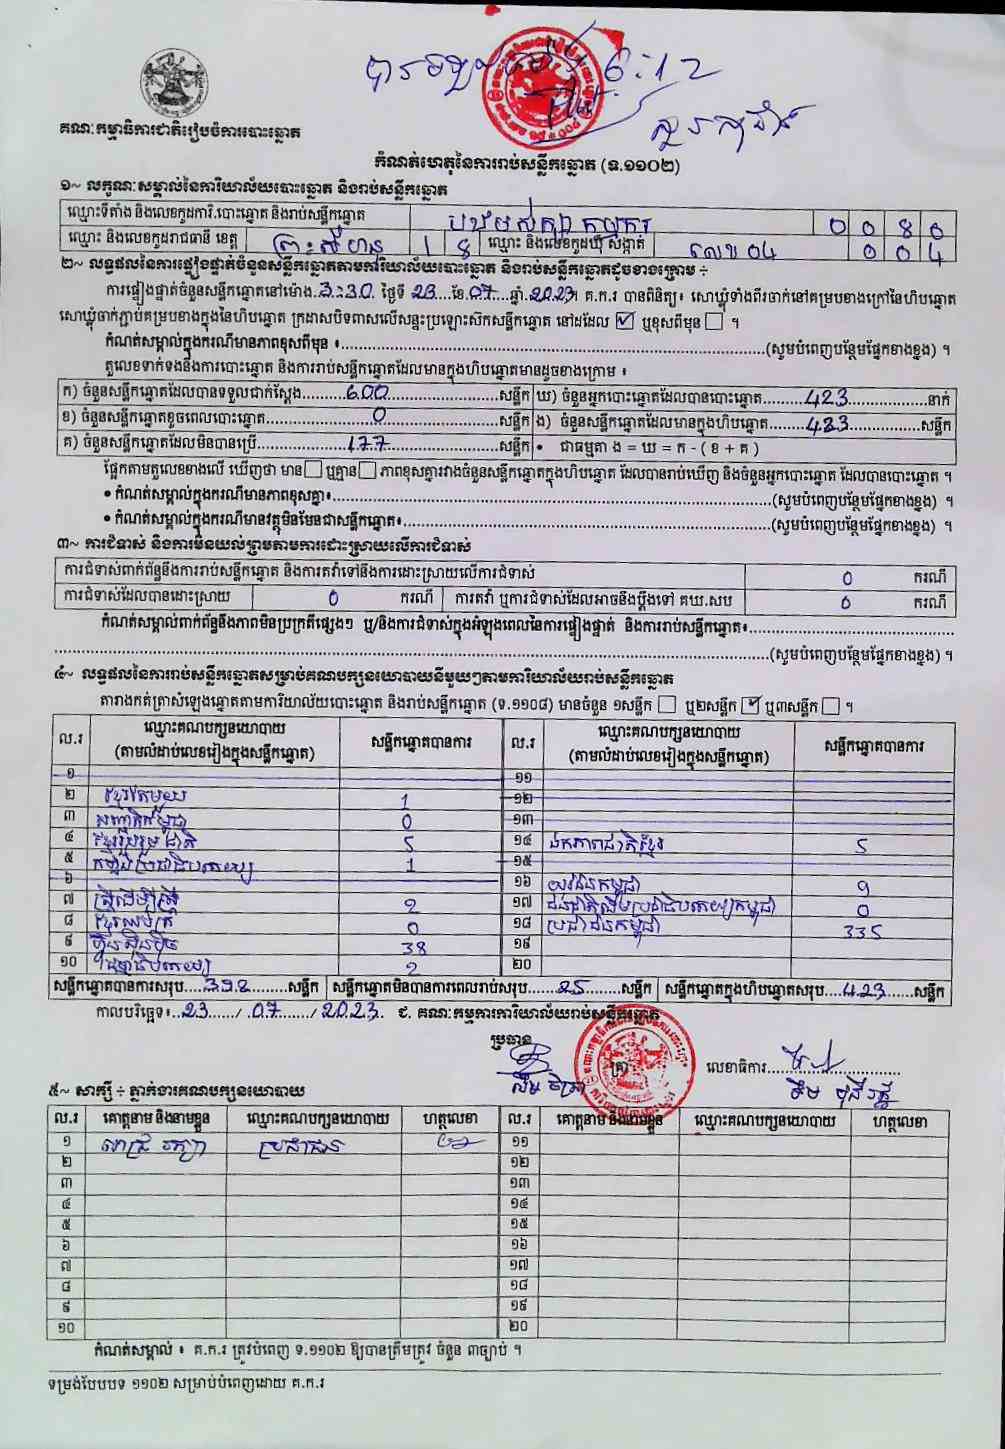 បានបិទផ្សាយម៉ោង 6:12
គណៈកម្មាធិការជាតិរៀបចំការបោះឆ្នោត
កំណត់ហេតុនៃការរាប់សន្លឹកឆ្នោត (ទ.១១០២)
១~ លក្ខណៈសម្គាល់នៃការិយាល័យបោះឆ្នោត និងរាប់សន្លឹកឆ្នោត
ឈ្មោះទីតាំង និងលេខកូដការិ.បោះឆ្នោត និងរាប់សន្លឹកឆ្នោត 0 0 8 0
ឈ្មោះ និងលេខកូដរាជធានី ខេត្ត ព្រះសីហនុ 1 8 ឈ្មោះ និងលេខកូដឃុំ សង្កាត់ លេខ 04 0 0 4
២~ លទ្ធផលនៃការផ្ទៀងផ្ទាត់ចំនួនសន្លឹកឆ្នោតតាមការិយាល័យបោះឆ្នោត និងរាប់សន្លឹកឆ្នោតដូចខាងក្រោម ÷
ការផ្ទៀងផ្ទាត់ចំនួនសន្លឹកឆ្នោតនៅម៉ោង 3:30 ថ្ងៃទី 23 ខែ 07 ឆ្នាំ 2023។ គ.ក.រ បានពិនិត្យ៖ សោឃ្លុំទាំងពីរចាក់នៅគម្របខាងក្រៅនៃហិបឆ្នោត
សោឃ្លុំចាក់ភ្ជាប់គម្របខាងក្នុងនៃហិបឆ្នោត ក្រដាសបិទពាសលើសន្ទះប្រឡោះស៊កសន្លឹកឆ្នោត នៅដដែល ☑ ឬខុសពីមុន ☐ ។
កំណត់សម្គាល់ក្នុងករណីមានភាពខុសពីមុន ៖ (សូមបំពេញបន្ថែមផ្នែកខាងខ្នង) ។
តួលេខទាក់ទងនឹងការបោះឆ្នោត និងការរាប់សន្លឹកឆ្នោតដែលមានក្នុងហិបឆ្នោតមានដូចខាងក្រោម ៖
ក) ចំនួនសន្លឹកឆ្នោតដែលបានទទួលជាក់ស្តែង 600 សន្លឹក ឃ) ចំនួនអ្នកបោះឆ្នោតដែលបានបោះឆ្នោត 423 នាក់
ខ) ចំនួនសន្លឹកឆ្នោតខូចពេលបោះឆ្នោត 0 សន្លឹក ង) ចំនួនសន្លឹកឆ្នោតដែលមានក្នុងហិបឆ្នោត 423 សន្លឹក
គ) ចំនួនសន្លឹកឆ្នោតដែលមិនបានប្រើ 177 សន្លឹក • ជាធម្មតា ង = ឃ = ក - ( ខ + គ )
ផ្អែកតាមតួលេខខាងលើ ឃើញថា មាន ☐ ឬគ្មាន ☐ ភាពខុសគ្នារវាងចំនួនសន្លឹកឆ្នោតក្នុងហិបឆ្នោត ដែលបានរាប់ឃើញ និងចំនួនអ្នកបោះឆ្នោត ដែលបានបោះឆ្នោត ។
• កំណត់សម្គាល់ក្នុងករណីមានភាពខុសគ្នា៖ (សូមបំពេញបន្ថែមផ្នែកខាងខ្នង) ។
• កំណត់សម្គាល់ក្នុងករណីមានវត្ថុមិនមែនជាសន្លឹកឆ្នោត៖ (សូមបំពេញបន្ថែមផ្នែកខាងខ្នង) ។
៣~ ការជំទាស់ និងការមិនយល់ព្រមតាមការដោះស្រាយលើការជំទាស់
ការជំទាស់ពាក់ព័ន្ធនឹងការរាប់សន្លឹកឆ្នោត និងការតវ៉ាទៅនឹងការដោះស្រាយលើការជំទាស់ 0 ករណី
ការជំទាស់ដែលបានដោះស្រាយ 0 ករណី ការតវ៉ា ឬការជំទាស់ដែលអាចនឹងប្តឹងទៅ គឃ.សប 0 ករណី
កំណត់សម្គាល់ពាក់ព័ន្ធនឹងភាពមិនប្រក្រតីផ្សេងៗ ឬ/និងការជំទាស់ក្នុងអំឡុងពេលនៃការផ្ទៀងផ្ទាត់ និងការរាប់សន្លឹកឆ្នោត៖
(សូមបំពេញបន្ថែមផ្នែកខាងខ្នង) ។
៤~ លទ្ធផលនៃការរាប់សន្លឹកឆ្នោតសម្រាប់គណបក្សនយោបាយនីមួយៗតាមការិយាល័យរាប់សន្លឹកឆ្នោត
តារាងកត់ត្រាសំឡេងឆ្នោតតាមការិយាល័យបោះឆ្នោត និងរាប់សន្លឹកឆ្នោត (ទ.១១០៨) មានចំនួន ១សន្លឹក ☐ ឬ២សន្លឹក ☑ ឬ៣សន្លឹក ☐ ។
ល.រ ឈ្មោះគណបក្សនយោបាយ (តាមលំដាប់លេខរៀងក្នុងសន្លឹកឆ្នោត) សន្លឹកឆ្នោតបានការ ល.រ ឈ្មោះគណបក្សនយោបាយ (តាមលំដាប់លេខរៀងក្នុងសន្លឹកឆ្នោត) សន្លឹកឆ្នោតបានការ
១ ១១
២ ខ្មែរតែមួយ 1 ១២
៣ សញ្ជាតិកម្ពុជា 0 ១៣
៤ ខ្មែររួបរួមជាតិ 5 ១៤ ឯកភាពជាតិខ្មែរ 5
៥ កម្លាំងប្រជាធិបតេយ្យ 1 ១៥
៦ ១៦ យុវជនកម្ពុជា 9
៧ ស្រ្តីដើម្បីស្រ្តី 2 ១៧ ជនជាតិដើមប្រជាធិបតេយ្យកម្ពុជា 0
៨ 0 ១៨ ប្រជាជនកម្ពុជា 335
៩ ហ្វ៊ុនស៊ិនប៉ិច 38 ១៩
១០ 2 ២០
សន្លឹកឆ្នោតបានការសរុប 398 សន្លឹក សន្លឹកឆ្នោតមិនបានការពេលរាប់សរុប 25 សន្លឹក សន្លឹកឆ្នោតក្នុងហិបឆ្នោតសរុប 423 សន្លឹក
កាលបរិច្ឆេទ៖ 23 / 07 / 2023 ជ. គណៈកម្មការការិយាល័យរាប់សន្លឹកឆ្នោត
ប្រធាន ត្រា លេខាធិការ
៥~ សាក្សី ÷ ភ្នាក់ងារគណបក្សនយោបាយ
ល.រ គោត្តនាម និងនាមខ្លួន ឈ្មោះគណបក្សនយោបាយ ហត្ថលេខា ល.រ គោត្តនាម និងនាមខ្លួន ឈ្មោះគណបក្សនយោបាយ ហត្ថលេខា
១ ប្រជាជន ១១
២ ១២
៣ ១៣
៤ ១៤
៥ ១៥
៦ ១៦
៧ ១៧
៨ ១៨
៩ ១៩
១០ ២០
កំណត់សម្គាល់ ៖ គ.ក.រ ត្រូវបំពេញ ទ.១១០២ ឱ្យបានត្រឹមត្រូវ ចំនួន ៣ច្បាប់ ។
ទម្រង់បែបបទ ១១០២ សម្រាប់បំពេញដោយ គ.ក.រ